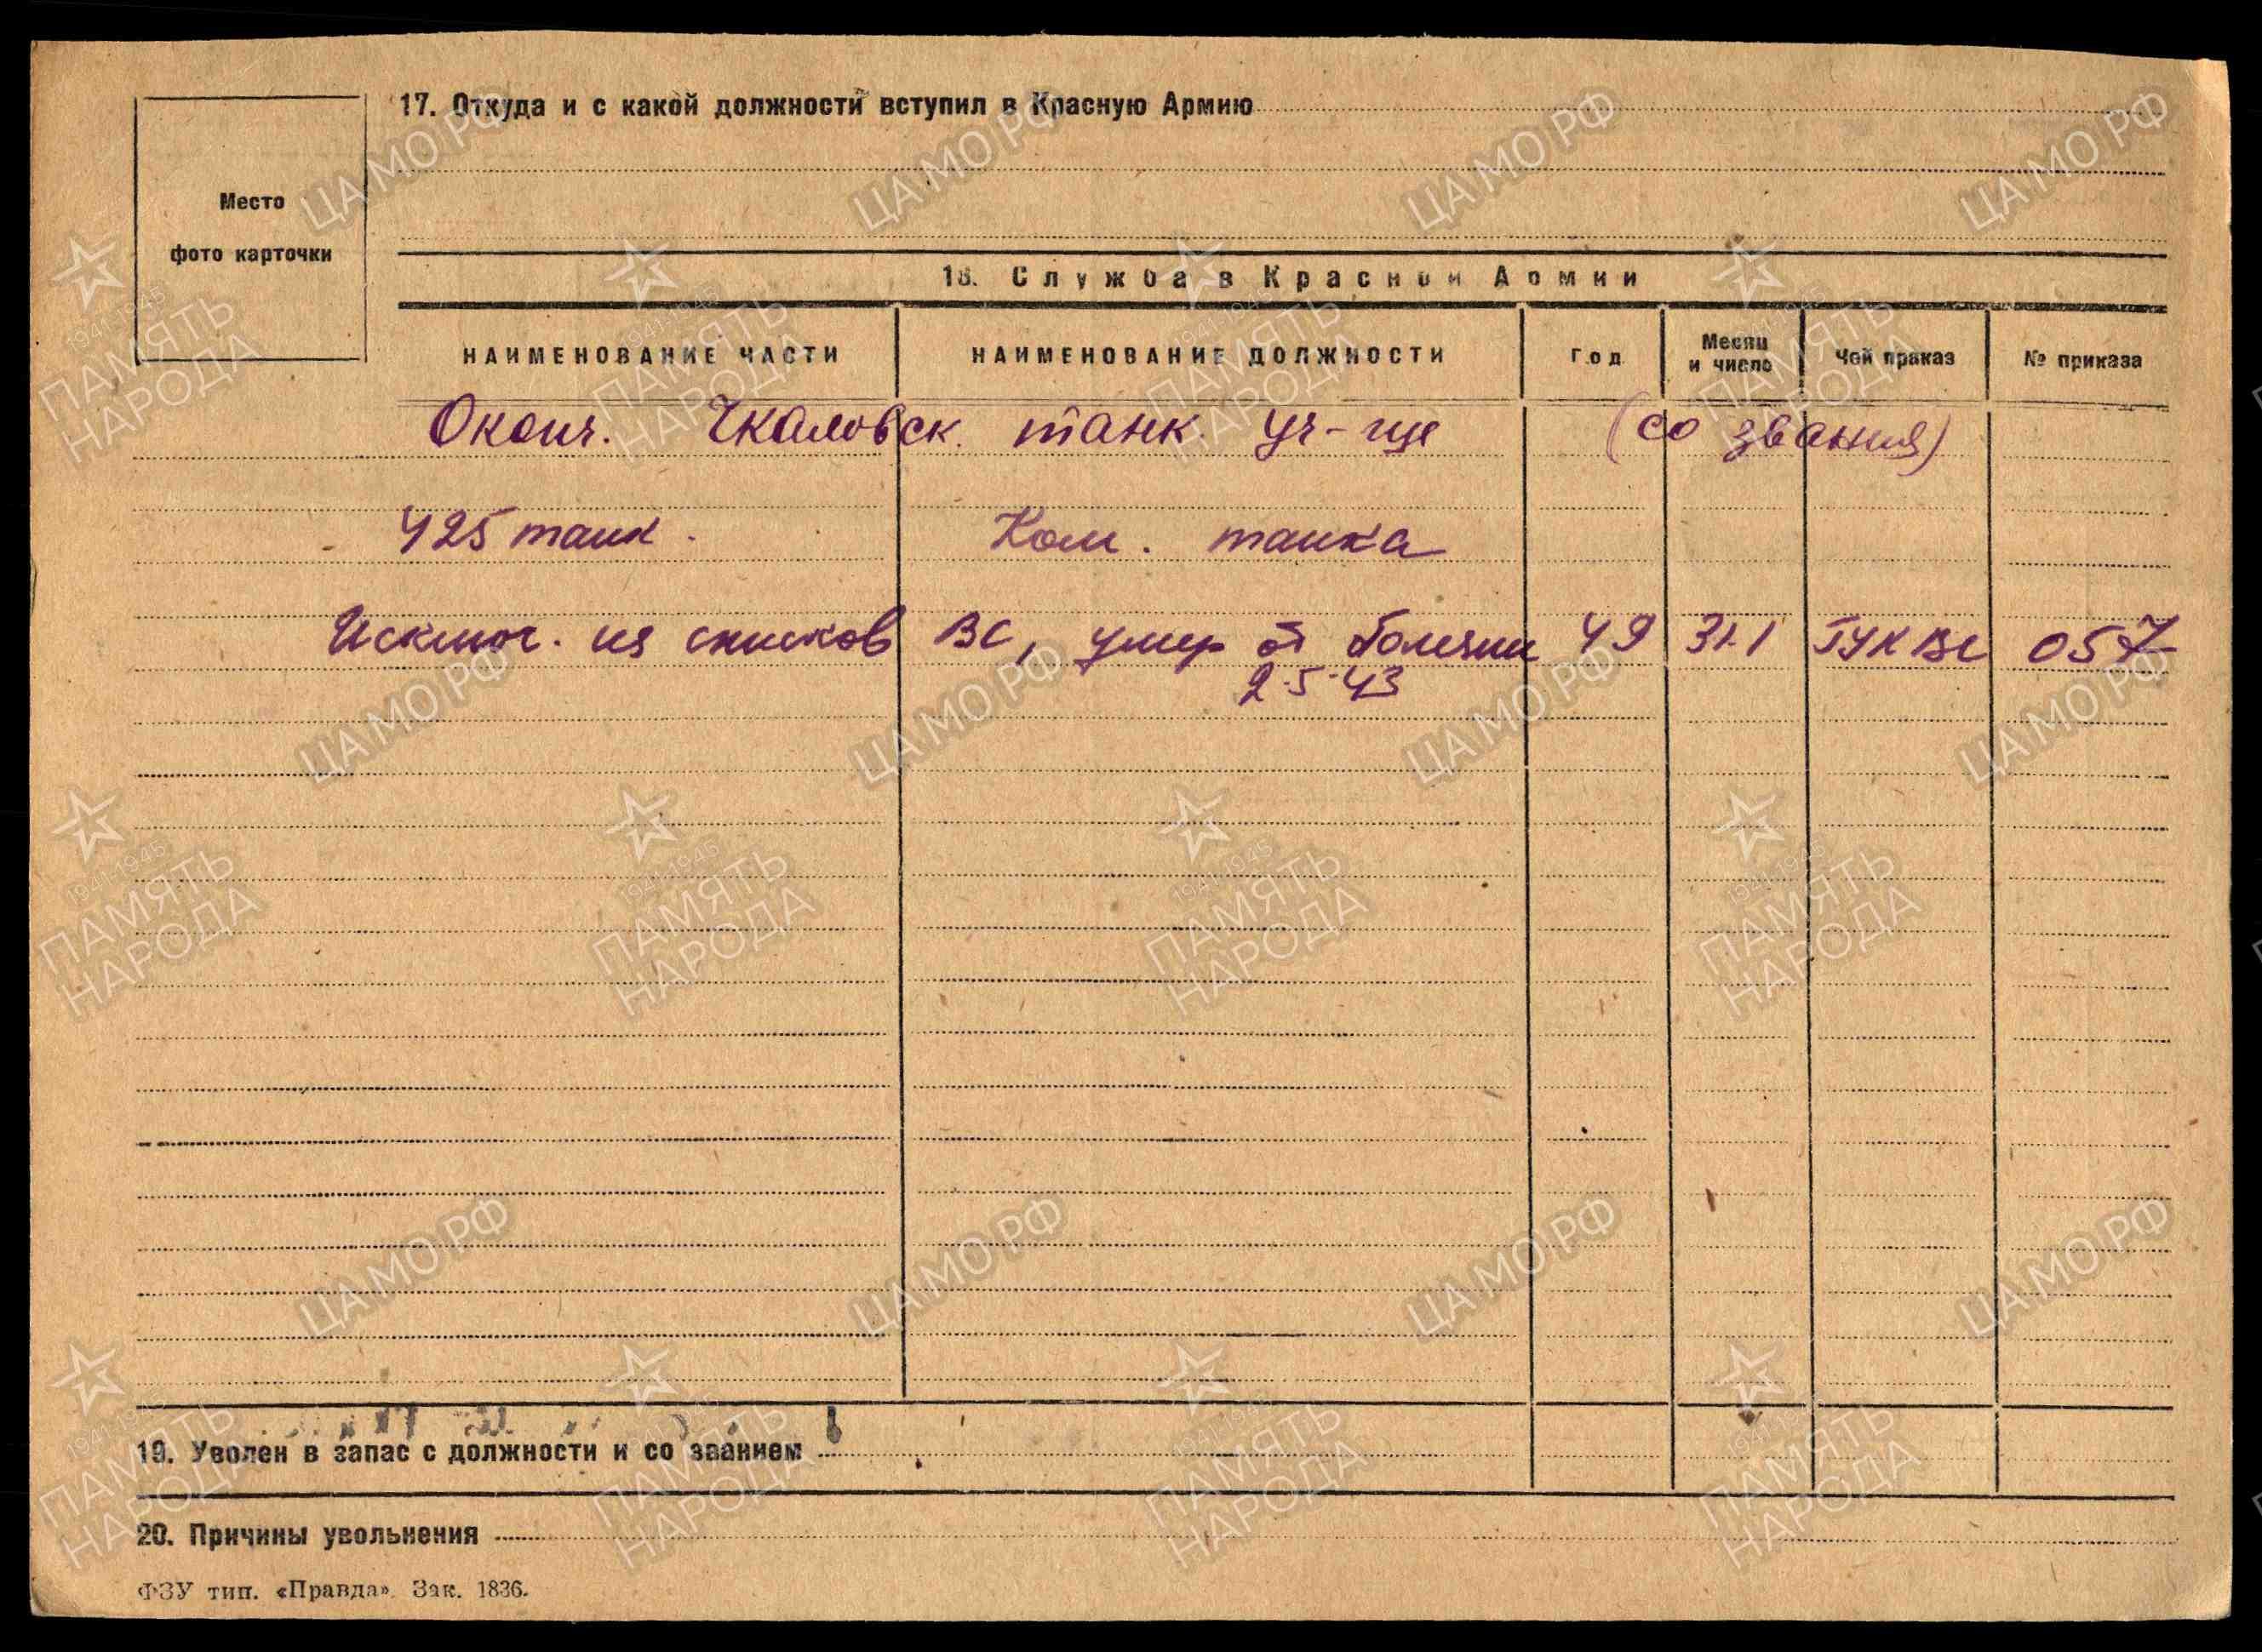 17. Откуда и с какой должности вступил в Красную Армию
Место
фото карточки
18. Служба в Красной Армии
НАИМЕНОВАНИЕ ЧАСТИ НАИМЕНОВАНИЕ ДОЛЖНОСТИ Год Месяц и число Чей приказ № приказа
Оконч. Чкаловск. танк. уч-ще (со звания)
425 танк. Ком. танка
Исключ. из списков ВС, умер от болезни 49 31.1 ГУК ВС 057
2.5.43
19. Уволен в запас с должности и со званием
20. Причины увольнения
ФЗУ тип. «Правда». Зак. 1836.
ЦАМО.РФ
1941-1945
ПАМЯТЬ
НАРОДА